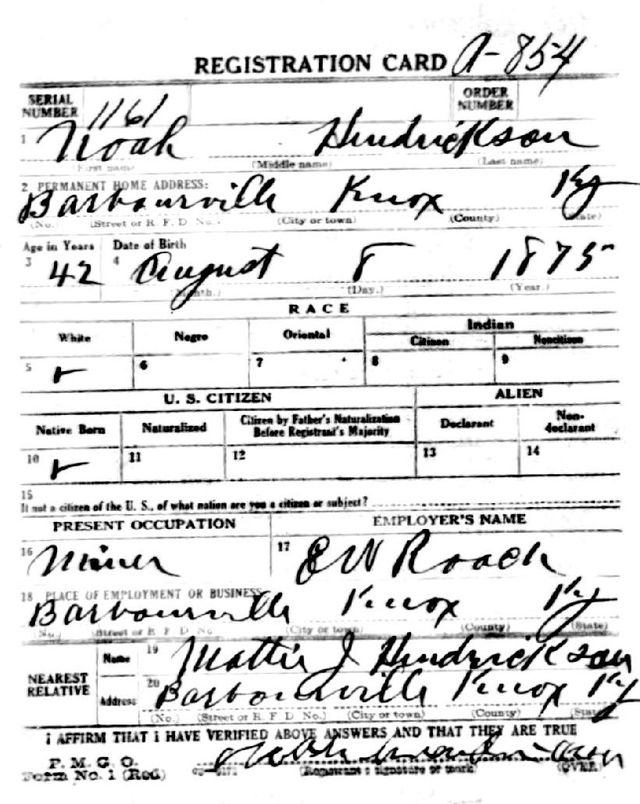 REGISTRATION CARD A-854
SERIAL NUMBER 1161 ORDER NUMBER
1 Noah Hendrickson
(First name) (Middle name) (Last name)
2 PERMANENT HOME ADDRESS:
Barbourville Knox Ky
(No.) (Street or R. F. D. No.) (City or town) (County) (State)
Age in Years Date of Birth
3 42 4 August 8 1875
(Month.) (Day.) (Year.)
RACE
White Negro Oriental Indian
Citizen Noncitizen
5 6 7 8 9
U. S. CITIZEN ALIEN
Native Born Naturalized Citizen by Father's Naturalization Before Registrant's Majority Declarant Non-declarant
10 11 12 13 14
15
If not a citizen of the U. S., of what nation are you a citizen or subject?
PRESENT OCCUPATION EMPLOYER'S NAME
16 Miner 17 E W Roach
18 PLACE OF EMPLOYMENT OR BUSINESS
Barbourville Knox Ky
(No.) (Street or R. F. D. No.) (City or town) (County) (State)
NEAREST RELATIVE Name 19 Mattie J Hendrickson
Address 20 Barbourville Knox Ky
(No.) (Street or R. F. D. No.) (City or town) (County) (State)
I AFFIRM THAT I HAVE VERIFIED ABOVE ANSWERS AND THAT THEY ARE TRUE
P. M. G. O.
Form No. 1 (Red) (Registrant's signature or mark) (OVER)